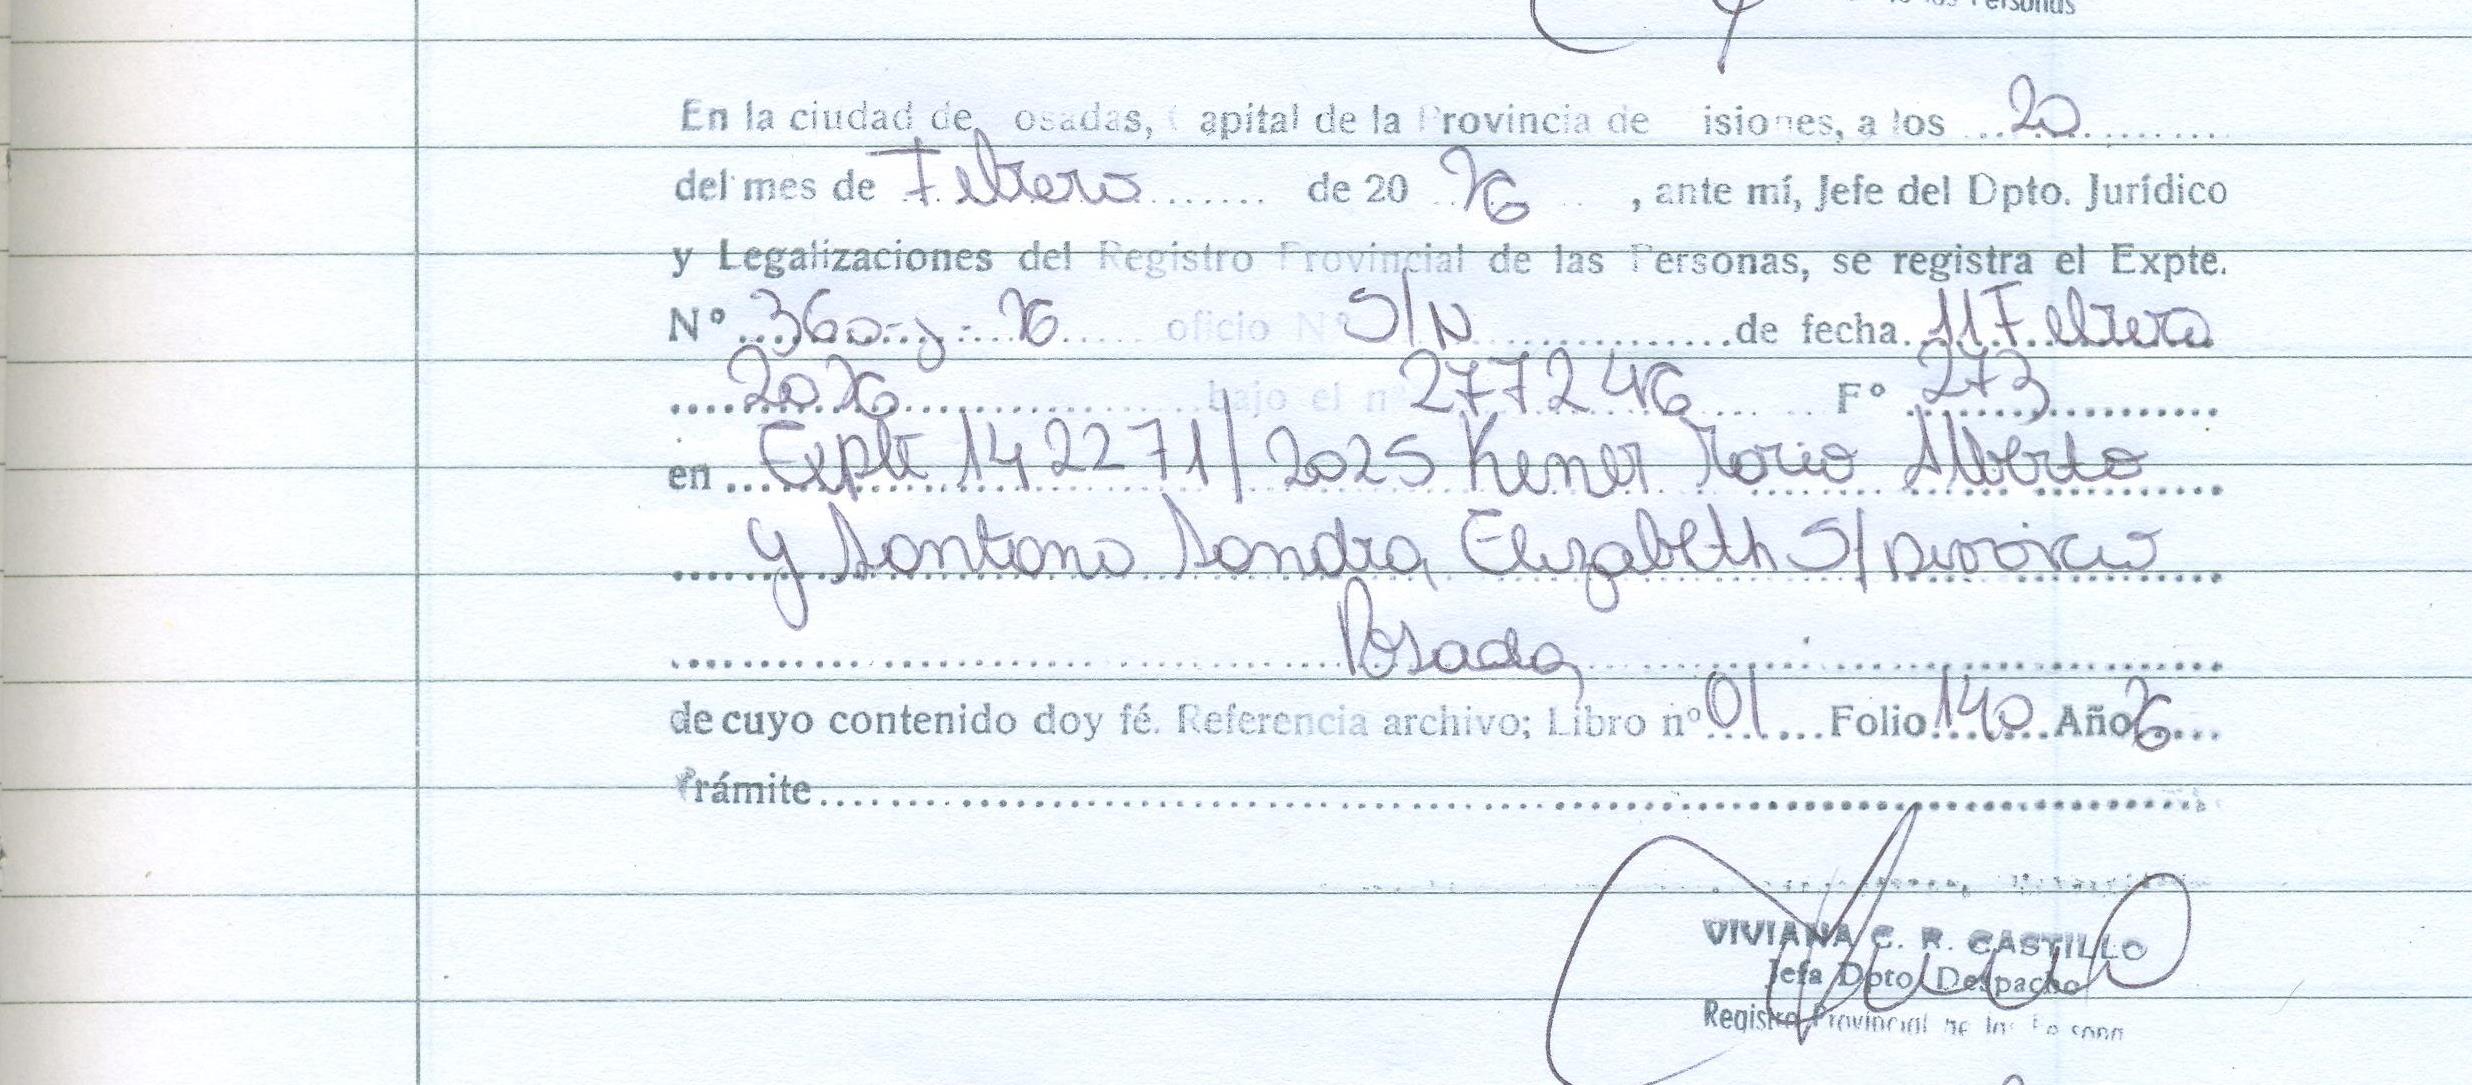 de las Personas
En la ciudad de Posadas, Capital de la Provincia de Misiones, a los 20
del mes de Febrero de 20 26, ante mí, Jefe del Dpto. Jurídico
y Legalizaciones del Registro Provincial de las Personas, se registra el Expte.
N° 360-J-26 oficio N° S/N de fecha 11 Febrero
2026 bajo el n° 277246 F° 273
en Expte 142271/2025 Kener Mario Alberto
y Santana Sandra Elizabeth S/Divorcio
Posadas
de cuyo contenido doy fé. Referencia archivo; Libro n° 01 Folio 140 Año 26
Trámite
VIVIANA C. R. CASTILLO
Jefa Dpto Despacho
Registro Provincial de las Personas